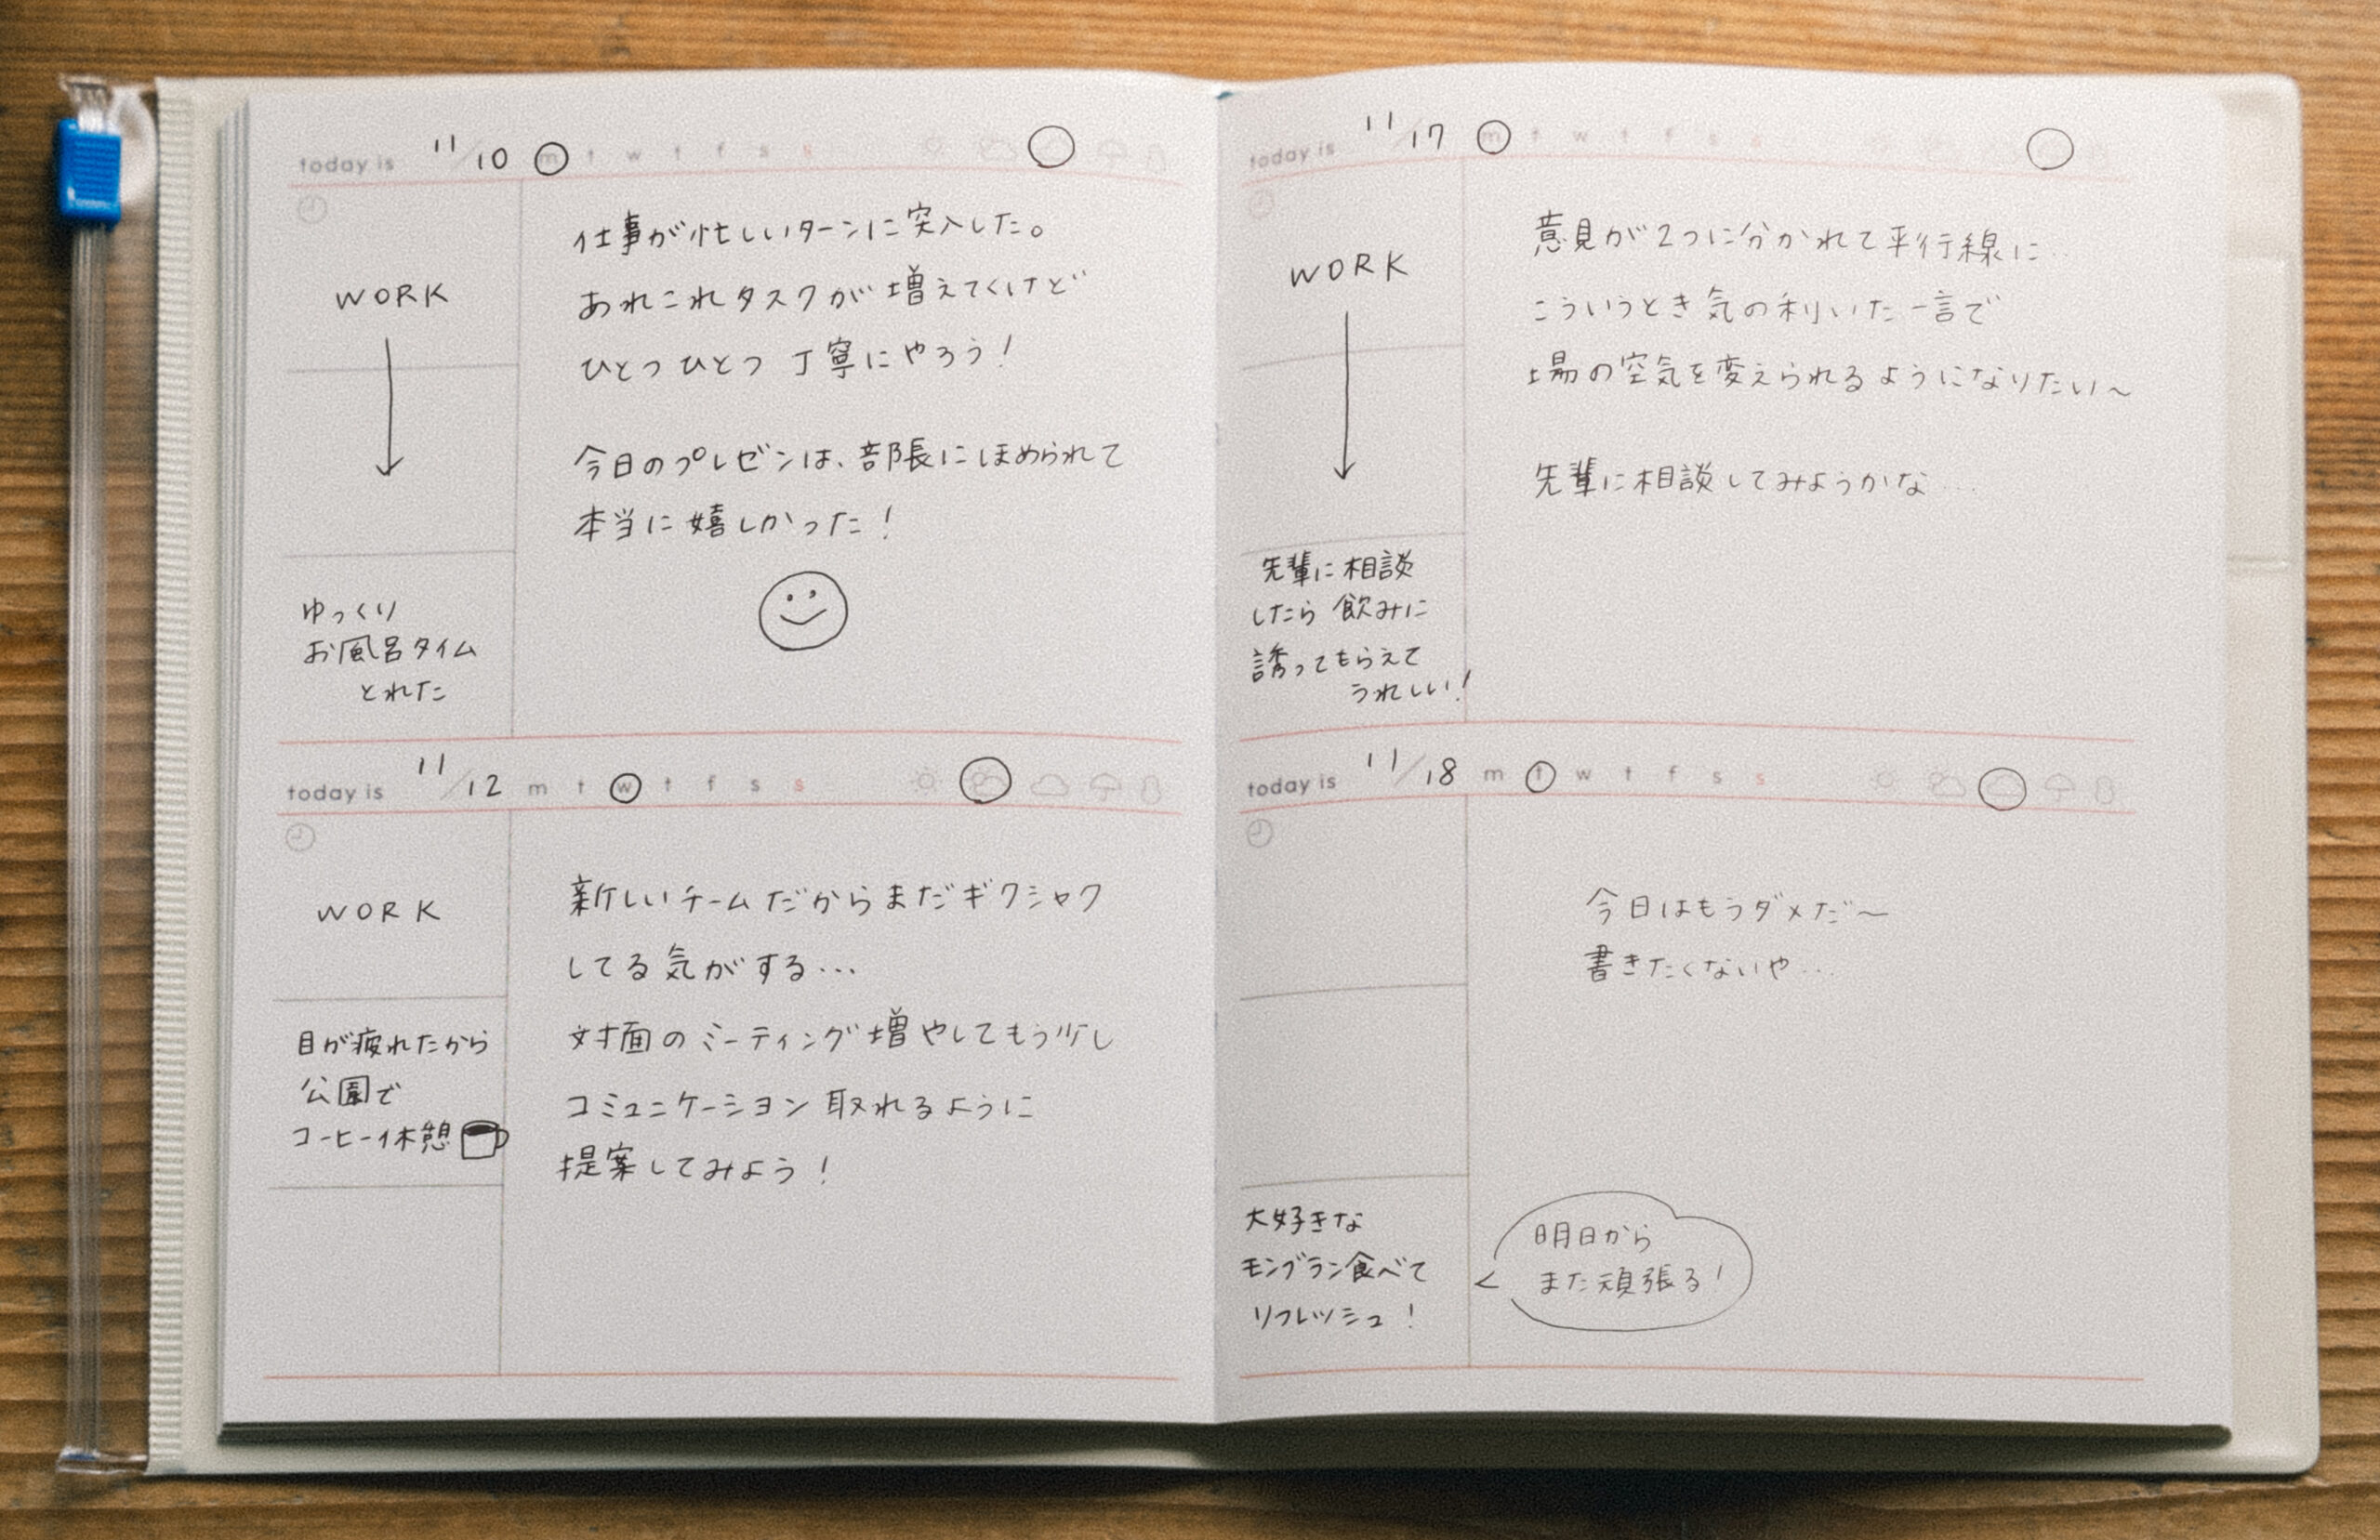 today is 11/10 m t w t f s s
WORK
ゆっくり
お風呂タイム
とれた
仕事が忙しいターンに突入した。
あれこれタスクが増えてくけど
ひとつひとつ丁寧にやろう!
今日のプレゼンは、部長にほめられて
本当に嬉しかった!
today is 11/12 m t w t f s s
WORK
目が疲れたから
公園で
コーヒー休憩
新しいチームだからまだギクシャク
してる気がする…
対面のミーティング増やしてもう少し
コミュニケーション取れるように
提案してみよう!
today is 11/17 m t w t f s s
WORK
先輩に相談
したら飲みに
誘ってもらえて
うれしい!
意見が2つに分かれて平行線に…
こういうとき気の利いた一言で
場の空気を変えられるようになりたい〜
先輩に相談してみようかな…
today is 11/18 m t w t f s s
大好きな
モンブラン食べて
リフレッシュ!
今日はもうダメだ〜
書きたくないや…
明日から
また頑張る!